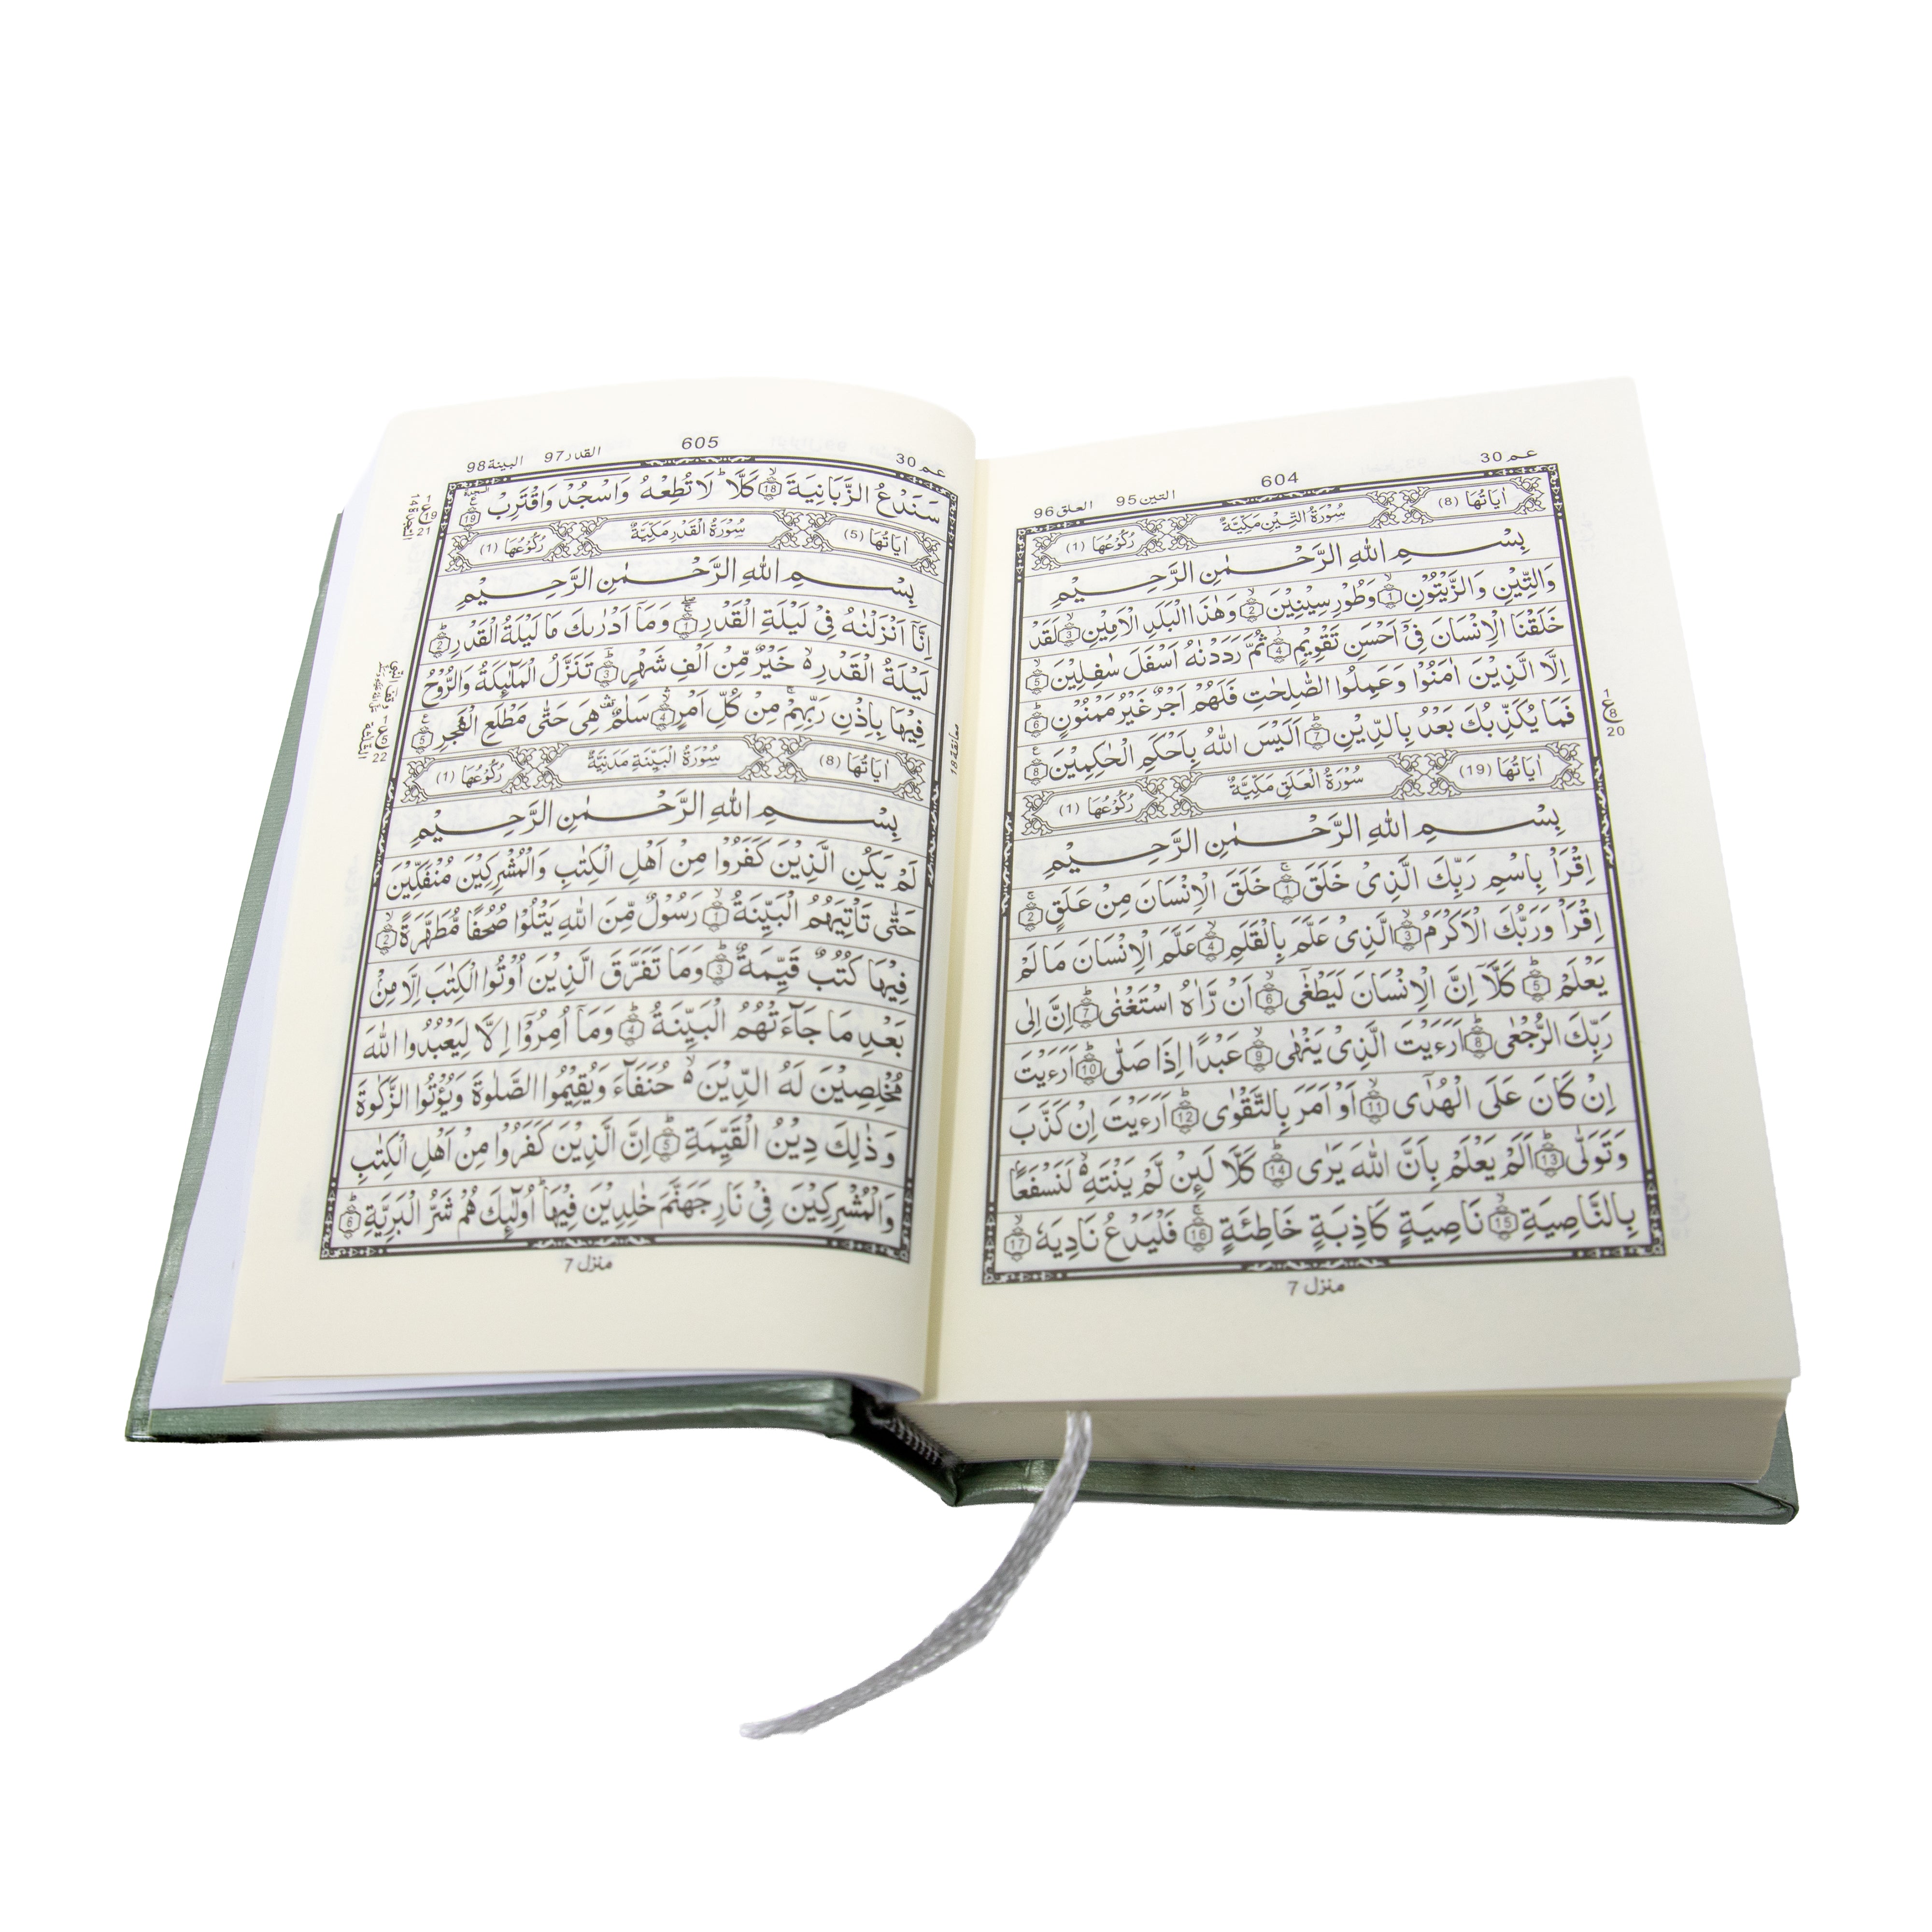 عم 30
604
التين 95
العلق 96
اٰيَاتُهَا (8)
سُوْرَةُ التِّيْنِ مَكِّيَّةٌ
رُكُوْعُهَا (1)
بِسْمِ اللّٰهِ الرَّحْمٰنِ الرَّحِيْمِ
وَالتِّيْنِ وَالزَّيْتُوْنِ 1 وَطُوْرِ سِيْنِيْنَ 2 وَهٰذَا الْبَلَدِ الْاَمِيْنِ 3 لَقَدْ
خَلَقْنَا الْاِنْسَانَ فِىْٓ اَحْسَنِ تَقْوِيْمٍ 4 ثُمَّ رَدَدْنٰهُ اَسْفَلَ سٰفِلِيْنَ 5
اِلَّا الَّذِيْنَ اٰمَنُوْا وَعَمِلُوا الصّٰلِحٰتِ فَلَهُمْ اَجْرٌ غَيْرُ مَمْنُوْنٍ 6
فَمَا يُكَذِّبُكَ بَعْدُ بِالدِّيْنِ 7 اَلَيْسَ اللّٰهُ بِاَحْكَمِ الْحٰكِمِيْنَ 8
ع 1 8 20
اٰيَاتُهَا (19)
سُوْرَةُ الْعَلَقِ مَكِّيَّةٌ
رُكُوْعُهَا (1)
بِسْمِ اللّٰهِ الرَّحْمٰنِ الرَّحِيْمِ
اِقْرَاْ بِاسْمِ رَبِّكَ الَّذِىْ خَلَقَ 1 خَلَقَ الْاِنْسَانَ مِنْ عَلَقٍ 2
اِقْرَاْ وَرَبُّكَ الْاَكْرَمُ 3 الَّذِىْ عَلَّمَ بِالْقَلَمِ 4 عَلَّمَ الْاِنْسَانَ مَا لَمْ
يَعْلَمْ 5 كَلَّاۤ اِنَّ الْاِنْسَانَ لَيَطْغٰٓى 6 اَنْ رَّاٰهُ اسْتَغْنٰى 7 اِنَّ اِلٰى
رَبِّكَ الرُّجْعٰى 8 اَرَءَيْتَ الَّذِىْ يَنْهٰى 9 عَبْدًا اِذَا صَلّٰى 10 اَرَءَيْتَ
اِنْ كَانَ عَلَى الْهُدٰٓى 11 اَوْ اَمَرَ بِالتَّقْوٰى 12 اَرَءَيْتَ اِنْ كَذَّبَ
وَتَوَلّٰى 13 اَلَمْ يَعْلَمْ بِاَنَّ اللّٰهَ يَرٰى 14 كَلَّا لَئِنْ لَّمْ يَنْتَهِ لَنَسْفَعًا
بِالنَّاصِيَةِ 15 نَاصِيَةٍ كَاذِبَةٍ خَاطِئَةٍ 16 فَلْيَدْعُ نَادِيَهٗ 17
منزل 7
عم 30
605
القدر 97
البينة 98
سَنَدْعُ الزَّبَانِيَةَ 18 كَلَّا لَا تُطِعْهُ وَاسْجُدْ وَاقْتَرِبْ 19
ع 1 19 21
السجدة 14
اٰيَاتُهَا (5)
سُوْرَةُ الْقَدْرِ مَكِّيَّةٌ
رُكُوْعُهَا (1)
بِسْمِ اللّٰهِ الرَّحْمٰنِ الرَّحِيْمِ
اِنَّاۤ اَنْزَلْنٰهُ فِىْ لَيْلَةِ الْقَدْرِ 1 وَمَاۤ اَدْرٰىكَ مَا لَيْلَةُ الْقَدْرِ 2
لَيْلَةُ الْقَدْرِ خَيْرٌ مِّنْ اَلْفِ شَهْرٍ 3 تَنَزَّلُ الْمَلٰٓئِكَةُ وَالرُّوْحُ
فِيْهَا بِاِذْنِ رَبِّهِمْ مِنْ كُلِّ اَمْرٍ 4 سَلٰمٌ هِىَ حَتّٰى مَطْلَعِ الْفَجْرِ 5
ع 1 5 22
معانقة 18
اٰيَاتُهَا (8)
سُوْرَةُ الْبَيِّنَةِ مَدَنِيَّةٌ
رُكُوْعُهَا (1)
بِسْمِ اللّٰهِ الرَّحْمٰنِ الرَّحِيْمِ
لَمْ يَكُنِ الَّذِيْنَ كَفَرُوْا مِنْ اَهْلِ الْكِتٰبِ وَالْمُشْرِكِيْنَ مُنْفَكِّيْنَ
حَتّٰى تَاْتِيَهُمُ الْبَيِّنَةُ 1 رَسُوْلٌ مِّنَ اللّٰهِ يَتْلُوْا صُحُفًا مُّطَهَّرَةً 2
فِيْهَا كُتُبٌ قَيِّمَةٌ 3 وَمَا تَفَرَّقَ الَّذِيْنَ اُوْتُوا الْكِتٰبَ اِلَّا مِنْ
بَعْدِ مَا جَآءَتْهُمُ الْبَيِّنَةُ 4 وَمَاۤ اُمِرُوْٓا اِلَّا لِيَعْبُدُوا اللّٰهَ
مُخْلِصِيْنَ لَهُ الدِّيْنَ حُنَفَآءَ وَيُقِيْمُوا الصَّلٰوةَ وَيُؤْتُوا الزَّكٰوةَ
وَذٰلِكَ دِيْنُ الْقَيِّمَةِ 5 اِنَّ الَّذِيْنَ كَفَرُوْا مِنْ اَهْلِ الْكِتٰبِ
وَالْمُشْرِكِيْنَ فِىْ نَارِ جَهَنَّمَ خٰلِدِيْنَ فِيْهَا اُولٰٓئِكَ هُمْ شَرُّ الْبَرِيَّةِ 6
منزل 7